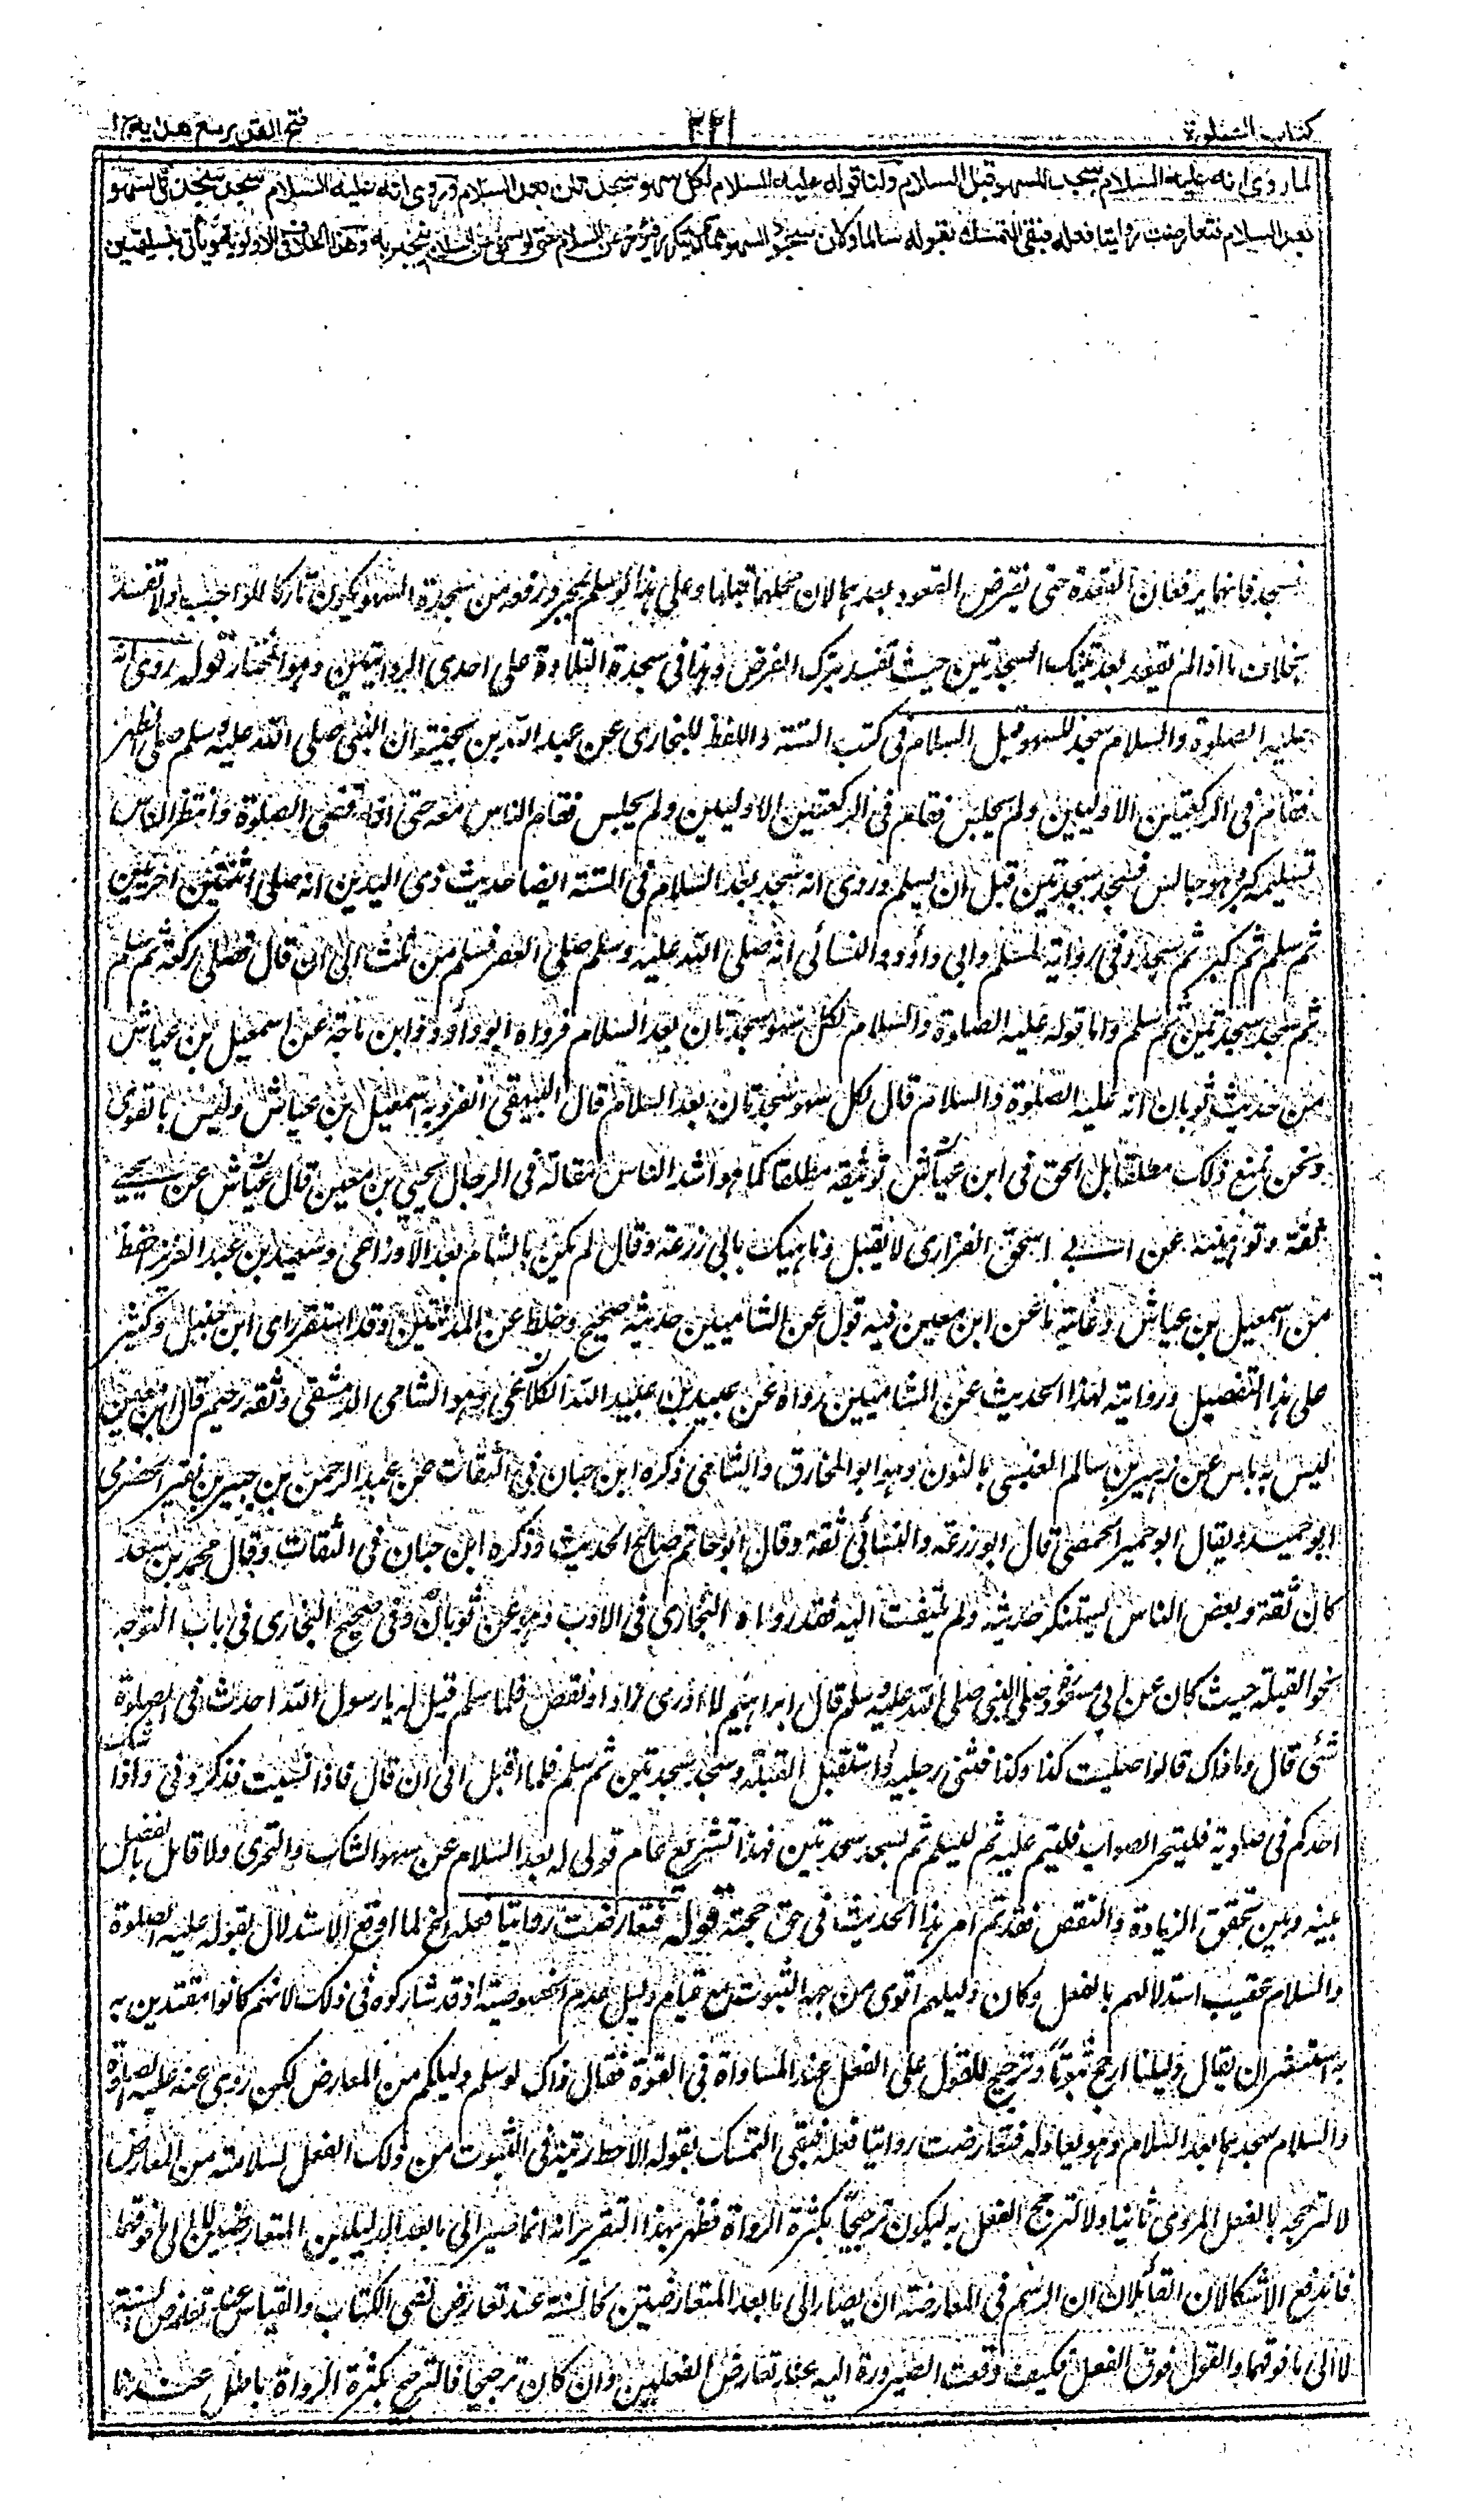 كتاب الصلوة
٢٢١
فتح القدير مع هداية ج ا
لما روى انه عليه السلام سجد للسهو قبل السلام ولنا قوله عليه السلام لكل سهو سجدتان بعد السلام وروى انه عليه السلام سجد سجدتى السهو
بعد السلام فتعارضت روايتا فعله فبقى التمسك بقوله سالما وكان سجود السهو مما لا يتكرر فيؤخر عن السلام حتى لو سهى عن السلام ينجبر به وهذا الخلاف فى الاولوية ويأتى بتسليمتين
يسجد فانهما يرفعان القعدة حتى يفترض القعود بعدهما لان محلهما قبلها وعلى هذا لو سلم بمجرد رفعه من سجدة السهو يكون تاركا للواجب ولا تفسد
بخلاف ما اذا لم يقعد بعد تينك السجدتين حيث تفسد بترك الفرض وهذا فى سجدة التلاوة على احدى الروايتين وهو المختار قوله روى انه
عليه الصلوة والسلام سجد للسهو قبل السلام فى كتب الستة واللفظ للبخارى عن عبد الله بن بحينة ان النبى صلى الله عليه وسلم صلى الظهر
فقام فى الركعتين الاوليين ولم يجلس فقام فى الركعتين الاوليين ولم يجلس فقام الناس معه حتى اذا قضى الصلوة وانتظر الناس
تسليمه كبر وهو جالس فسجد سجدتين قبل ان يسلم وروى انه سجد بعد السلام فى الستة ايضا حديث ذى اليدين انه صلى اثنتين اخريين
ثم سلم ثم كبر ثم سجد وفى رواية لمسلم وابى داؤد والنسائى انه صلى الله عليه وسلم صلى العصر فسلم من ثلث الى ان قال فصلى ركعة ثم سلم
ثم سجد سجدتين ثم سلم واما قوله عليه الصلوة والسلام لكل سهو سجدتان بعد السلام فرواه ابو داؤد وابن ماجة عن اسمعيل بن عياش
من حديث ثوبان انه عليه الصلوة والسلام قال لكل سهو سجدتان بعد السلام قال البيهقى انفرد به اسمعيل بن عياش وليس بالقوى
ونحن نمنع ذلك مطلقا بل الحق فى ابن عياش توثيقه مطلقا كما هو اشد الناس مقالة فى الرجال يحيى بن معين قال عياش عن يحيى
ثقة وتوهينه عن ابى اسحق الفزارى لا يقبل وناهيك بابى زرعة وقال لم يكن بالشام بعد الاوزاعى وسعيد بن عبد العزيز احفظ
من اسمعيل بن عياش وغاية ما عن ابن معين فيه قول عن الشاميين حديثه صحيح وخلط عن المدنيين وقد استقر راى ابن حنبل وكثير
على هذا التفصيل وروايته لهذا الحديث عن الشاميين رواه عن عبيد بن عبيد الله الكلاعى وهو الشامى الدمشقى وثقه دحيم قال ابن معين
ليس به باس عن زهير بن سالم العنسى بالنون وهو ابو المخارق والشامى ذكره ابن حبان فى الثقات عن عبد الرحمن بن جبير بن نفير الحضرمى
ابو حميد ويقال ابو حمير الحمصى قال ابو زرعة والنسائى ثقة وقال ابو حاتم صالح الحديث وذكره ابن حبان فى الثقات وقال محمد بن سعد
كان ثقة وبعض الناس يستنكر حديثه ولم يلتفت اليه فقد رواه البخارى فى الادب وهو عن ثوبان وفى صحيح البخارى فى باب التوجه
نحو القبلة حيث كان عن ابن مسعود صلى النبى صلى الله عليه وسلم قال ابراهيم لا ادرى زاد او نقص فلما سلم قيل له يا رسول الله احدث فى الصلوة
شئى قال وما ذاك قالوا صليت كذا وكذا فثنى رجليه واستقبل القبلة وسجد سجدتين ثم سلم فلما اقبل الى ان قال فاذا نسيت فذكرونى واذا شك
احدكم فى صلوته فليتحر الصواب فليتم عليه ثم ليسلم ثم ليسجد سجدتين فهذا تشريع عام قولى له بعد السلام عن سهو الشك والتحرى ولا قائل بالفصل
بينه وبين تحقق الزيادة والنقص فقد تم امر هذا الحديث فى حق حجته قوله فتعارضت روايتا فعله الخ لما اوقع الاستدلال بقوله عليه الصلوة
والسلام عقيب استدلالهم بالفعل وكان دليلهم اقوى من جهة الثبوت مع قيام دليل عدم الخصوصية اذ قد شاركوه فى ذلك لانهم كانوا مقتدين به
به استشعر ان يقال دليلنا ارجح ثبوتا وترجيح للقول على الفعل عند المساواة فى القوة فقال ذاك لو سلم دليلكم من المعارض لكن روى عنه عليه الصلوة
والسلام سجدهما بعد السلام وهو يعادله فتعارضت روايتا فعله فبقى التمسك بقوله الاحط رتبة فى الثبوت من ذلك الفعل لسلامته من المعارض
لا لترجحه بالفعل المروى ثانيا ولا لترجح الفعل به ليكون ترجيحا بكثرة الرواة فظهر بهذا التقرير انه انما صير الى ما بعد الدليلين المتعارضين لا الى ما فوقهما
فاندفع الاشكالان القائلان ان الرسم فى المعارضة ان يصار الى ما بعد المتعارضتين كالسنة عند تعارض نصى الكتاب والقياس عند تعارض السنة
لا الى ما فوقهما والقول فوق الفعل فكيف وقعت الصيرورة اليه عند تعارض الفعلين وان كان ترجيحا فالترجيح بكثرة الرواة باطل عندنا